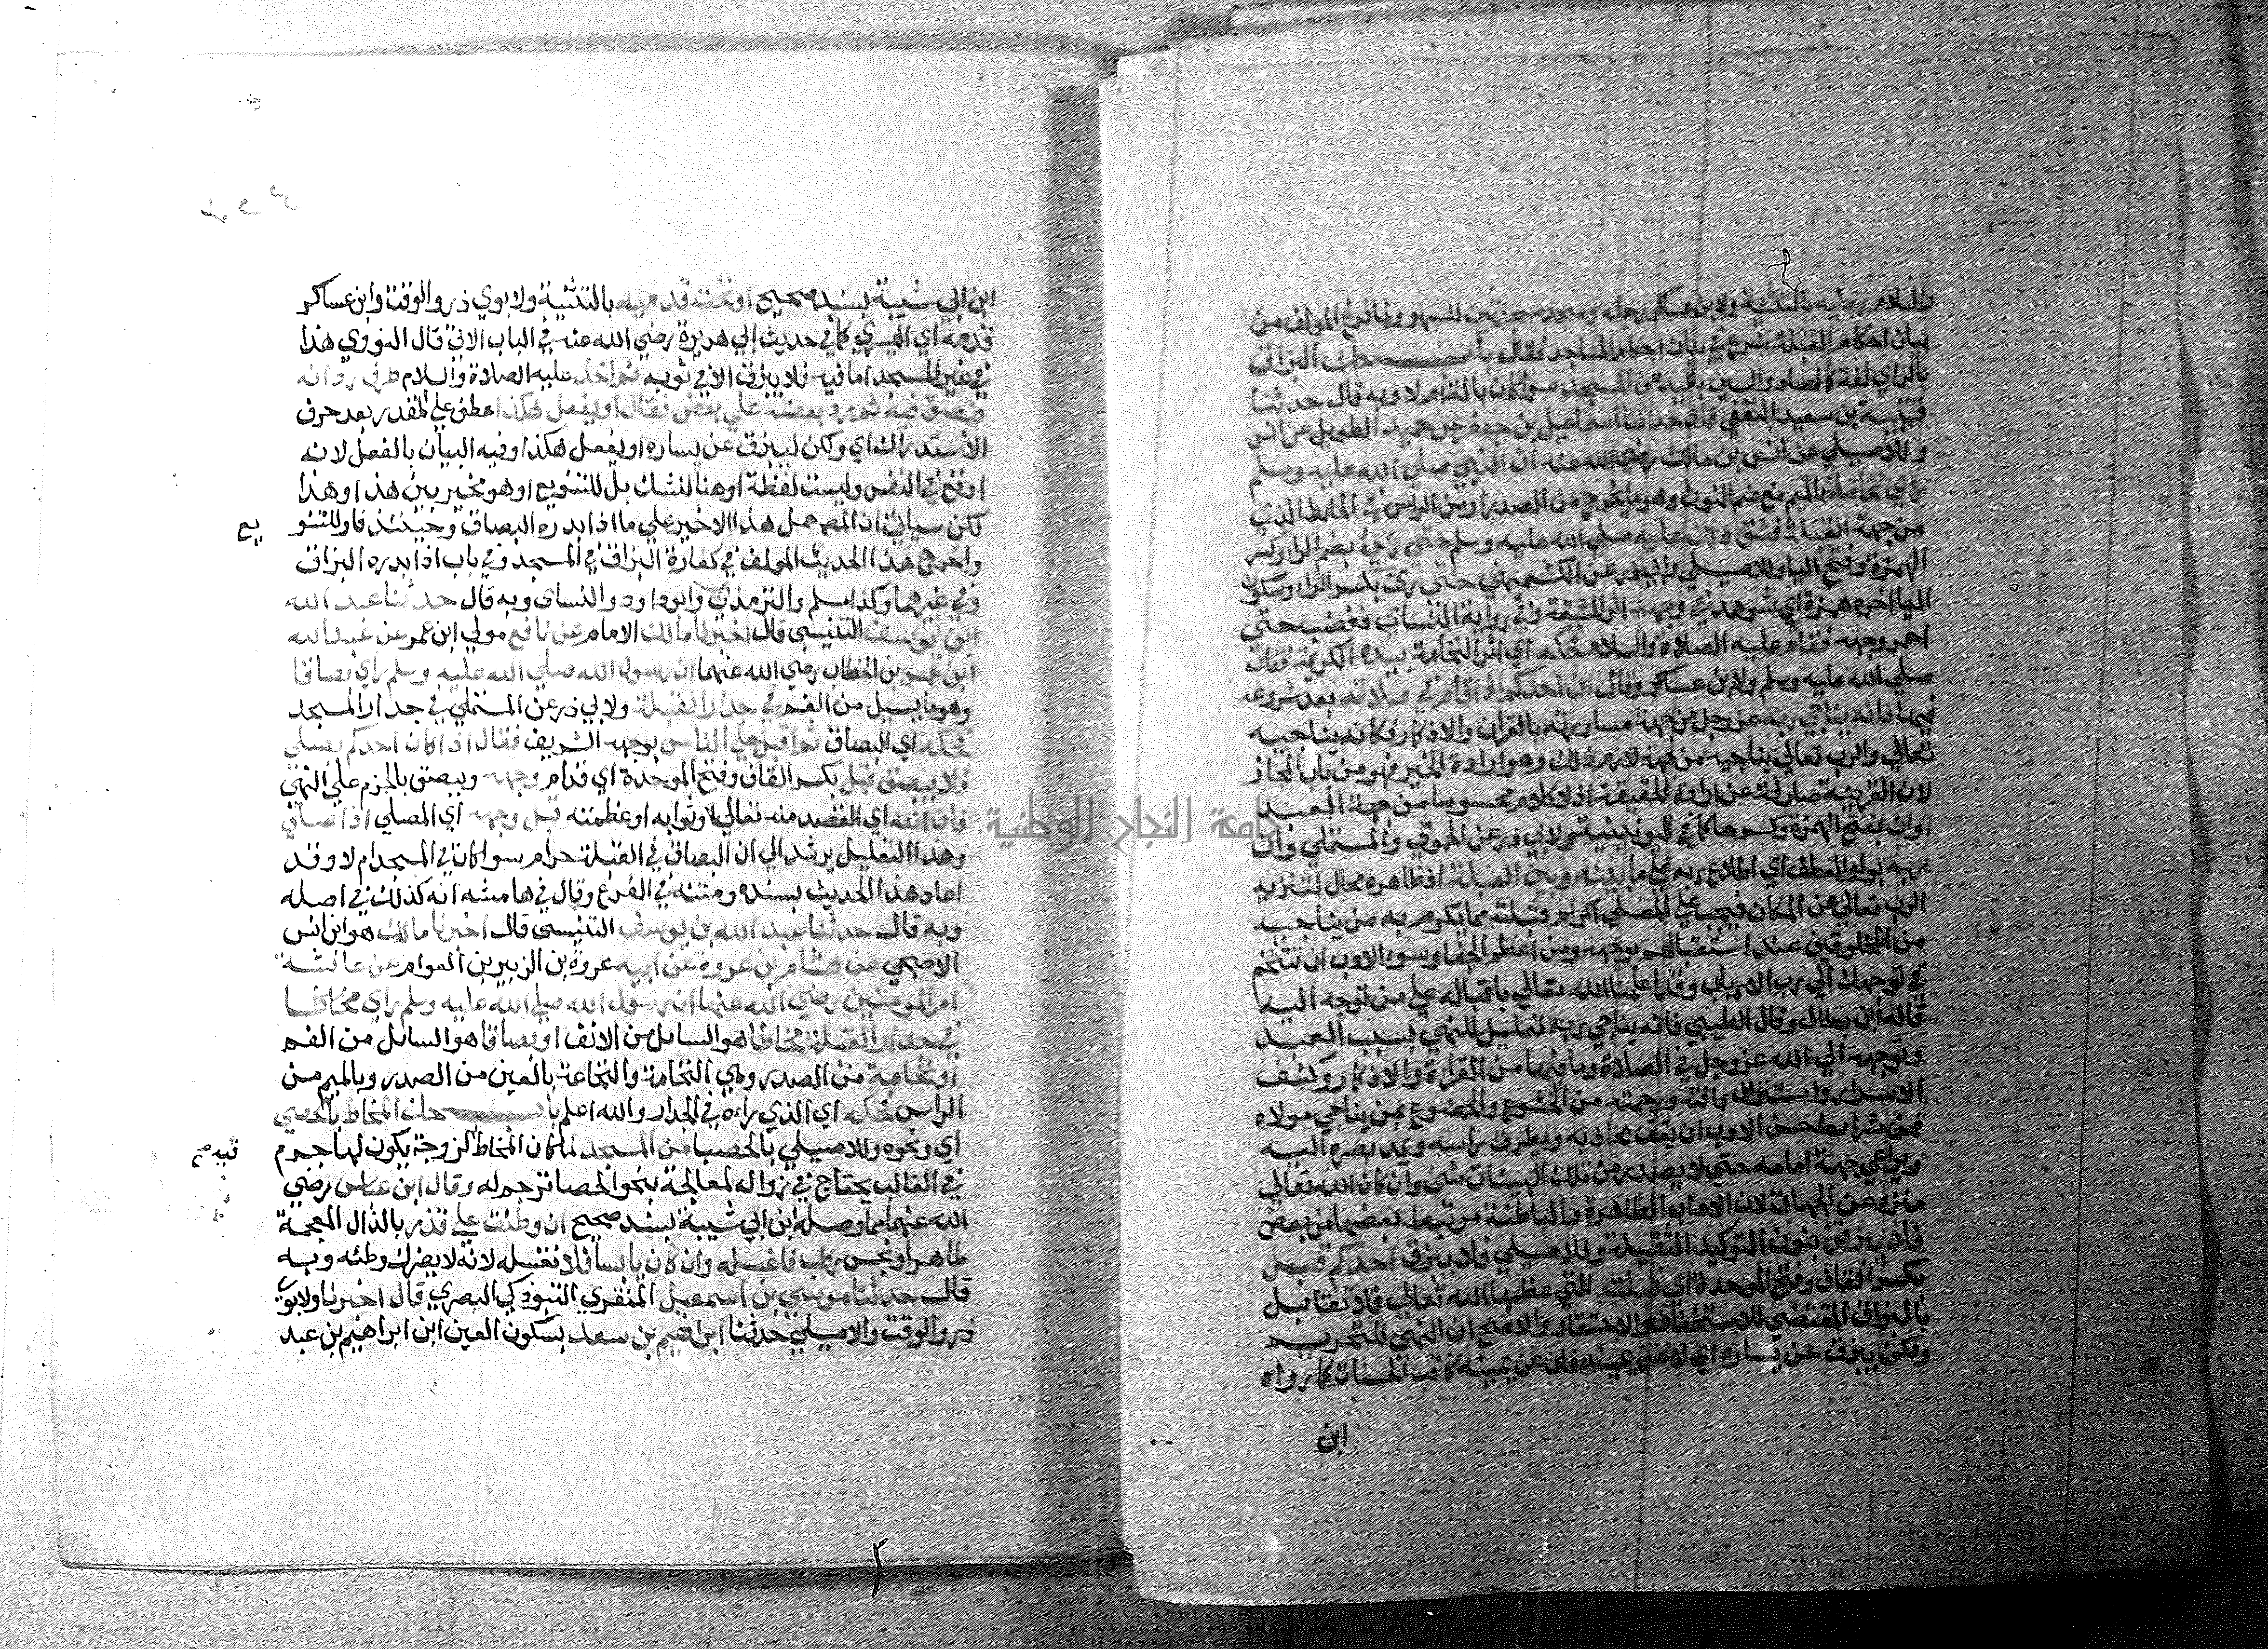 والسلام رجليه بالتثنية ولابن عساكر رجله وسجد سجدتين للسهو ولما فرغ المولف من
بيان احكام القبلة شرع في بيان احكام المساجد فقال باب حك البزاق
بالزاي لغة كالصاد والسين باليد من المسجد سوا كان بالة ام لا وبه قال حدثنا
قتيبة بن سعيد الثقفي قال حدثنا اسماعيل بن جعفر عن حميد الطويل عن انس
وللاصيلي عن انس بن مالك رضي الله عنه ان النبي صلي الله عليه وسلم
راي نخامة بالميم مع ضم النون وهو ما يخرج من الصدر او من الراس في الحايط الذي
من جهة القبلة فشق ذلك عليه صلي الله عليه وسلم حتي رئ بضم الرا وكسر
الهمزة وفتح اليا وللاصيلي وابي ذر عن الكشميهني حتي رئ بكسر الراء وسكون
اليا اخره همزة اي شوهد في وجهه اثر المشقة وفي رواية النساي فغضب حتي
احمر وجهه فقام عليه الصلاة والسلام فحكه اي اثر النخامة بيده الكريمة فقال
صلي الله عليه وسلم ولابن عساكر وقال ان احدكم اذا قام في صلاته بعد شروعه
فيها فانه يناجي ربه عز وجل من جهة مساررته بالقران والاذكار فكانه يناجيه
تعالي والرب تعالي يناجيه من جهة لازم ذلك وهو ارادة الخير فهو من باب المجاز
لان القرينة صارفة عن ارادة الحقيقة اذ لا كلام محسوسا من جهة العبد
او ان بفتح الهمزة وكسرها كما في اليونينية ولابي ذر عن الحموي والمستملي وان
ربه بواو العطف اي اطلاع ربه علي ما بينه وبين القبلة اذ ظاهره محال لتنزيه
الرب تعالي عن المكان فيجب علي المصلي اكرام قبلته مما يكرم به من يناجيه
من المخلوقين عند استقبالهم بوجهه ومن اعظم الجفا وسوء الادب ان تتنخم
في توجهك الي رب الارباب وقد اعلمنا الله تعالي باقباله علي من توجه اليه
قاله ابن بطال وقال الطيبي فانه يناجي ربه تعليل للنهي لسبب العبد
وتوجهه الي الله عز وجل في الصلاة وما فيها من القراءة والاذكار وكشف
الاسرار واستنزال رافته ورحمته من الخشوع والخضوع بمن يناجي مولاه
فمن شرايط حسن الادب ان يقف محاذيه ويطرق راسه ويمد بصره اليه
ويراعي جهة امامه حتي لا يصدر من تلك الهيئات شئ وان كان الله تعالي
منزه عن الجهات لان الاداب الظاهرة والباطنة مرتبط بعضها من بعض
فلا يبزقن بنون التوكيد الثقيلة وللاصيلي فلا يبزق احدكم قبل
بكسر القاف وفتح الموحدة اي قبلته التي عظمها الله تعالي فلا تقابل
بالبزاق المقتضي للاستخفاف والاحتقار والاصح ان النهي للتحريم
ولكن يبزق عن يساره اي لا عن يمينه فان عن يمينه كاتب الحسنات كما رواه
ابن
ابن ابي شيبة بسند صحيح او تحت قدميه بالتثنية ولابوي ذر والوقت وابن عساكر
قدمه اي اليسري كما في حديث ابي هريرة رضي الله عنه في الباب الاتي قال النووي هذا
في غير المسجد اما فيه فلا يبزق الا في ثوبه ثم اخذ عليه الصلاة والسلام طرف ردائه
فبصق فيه ثم رد بعضه علي بعض فقال او يفعل هكذا عطف علي المقدر بعد حرف
الاستدراك اي ولكن ليبزق عن يساره او يفعل هكذا وفيه البيان بالفعل لانه
اوقع في النفس وليست لفظة او هنا للشك بل للتنويع او هو مخير بين هذا وهذا
لكن سياتي ان المص حمل هذا الاخير علي ما اذا بدره البصاق وحينئذ فاو للتنو
يع
واخرج هذا الحديث المولف في كفارة البزاق في المسجد وفي باب اذا بدره البزاق
وفي غيرهما وكذا مسلم والترمذي وابو داود والنساى وبه قال حدثنا عبد الله
ابن يوسف التنيسي قال اخبرنا مالك الامام عن نافع مولي ابن عمر عن عبد الله
ابن عمر بن الخطاب رضي الله عنهما ان رسول الله صلي الله عليه وسلم راي بصاقا
وهو ما يسيل من الفم في جدار القبلة ولابي ذر عن المستملي في جدار المسجد
فحكه اي البصاق ثم اقبل علي الناس بوجهه الشريف فقال اذا كان احدكم يصلي
فلا يبصق قبل بكسر القاف وفتح الموحدة اي قدام وجهه ويبصق بالجزم علي النهي
فان الله اي القصد منه تعالي او ثوابه او عظمته قبل وجهه اي المصلي اذا صلي
وهذا التعليل يرشد الي ان البصاق في القبلة حرام سوا كان في المسجد ام لا وقد
اعاد هذا الحديث بسنده ومتنه في الفرع وقال في هامشه انه كذلك في اصله
وبه قال حدثنا عبد الله بن يوسف التنيسي قال اخبرنا مالك هو ابن انس
الاصبحي عن هشام بن عروة عن ابيه عروة بن الزبير بن العوام عن عائشة
ام المومنين رضي الله عنها ان رسول الله صلي الله عليه وسلم راي مخاطا
في جدار القبلة مخاطا هو السائل من الانف او بصاقا هو السائل من الفم
او نخامة من الصدر وهي النخامة والنخاعة بالعين من الصدر وبالميم من
الراس فحكه اي الذي راه في الجدار والله اعلم باب حك المخاط بالحصي
اي ونحوه وللاصيلي بالحصبا من المسجد لما كان المخاط لزوجة يكون لها جرم
في الغالب يحتاج في زواله لمعالجة بنحو الحصا ترجم له وقال ابن عباس رضي
الله عنهما مما وصله ابن ابي شيبة بسند صحيح ان وطئت علي قذر بالذال المعجمة
طاهر او نجس رطب فاغسله وان كان يابسا فلا تغسله لانه لا يضرك وطئه وبه
قال حدثنا موسي بن اسمعيل المنقري التبوذكي البصري قال اخبرنا ولابوي
ذر والوقت والاصيلي حدثنا ابراهيم بن سعد بسكون العين ابن ابراهيم بن عبد
جامعة النجاح الوطنية